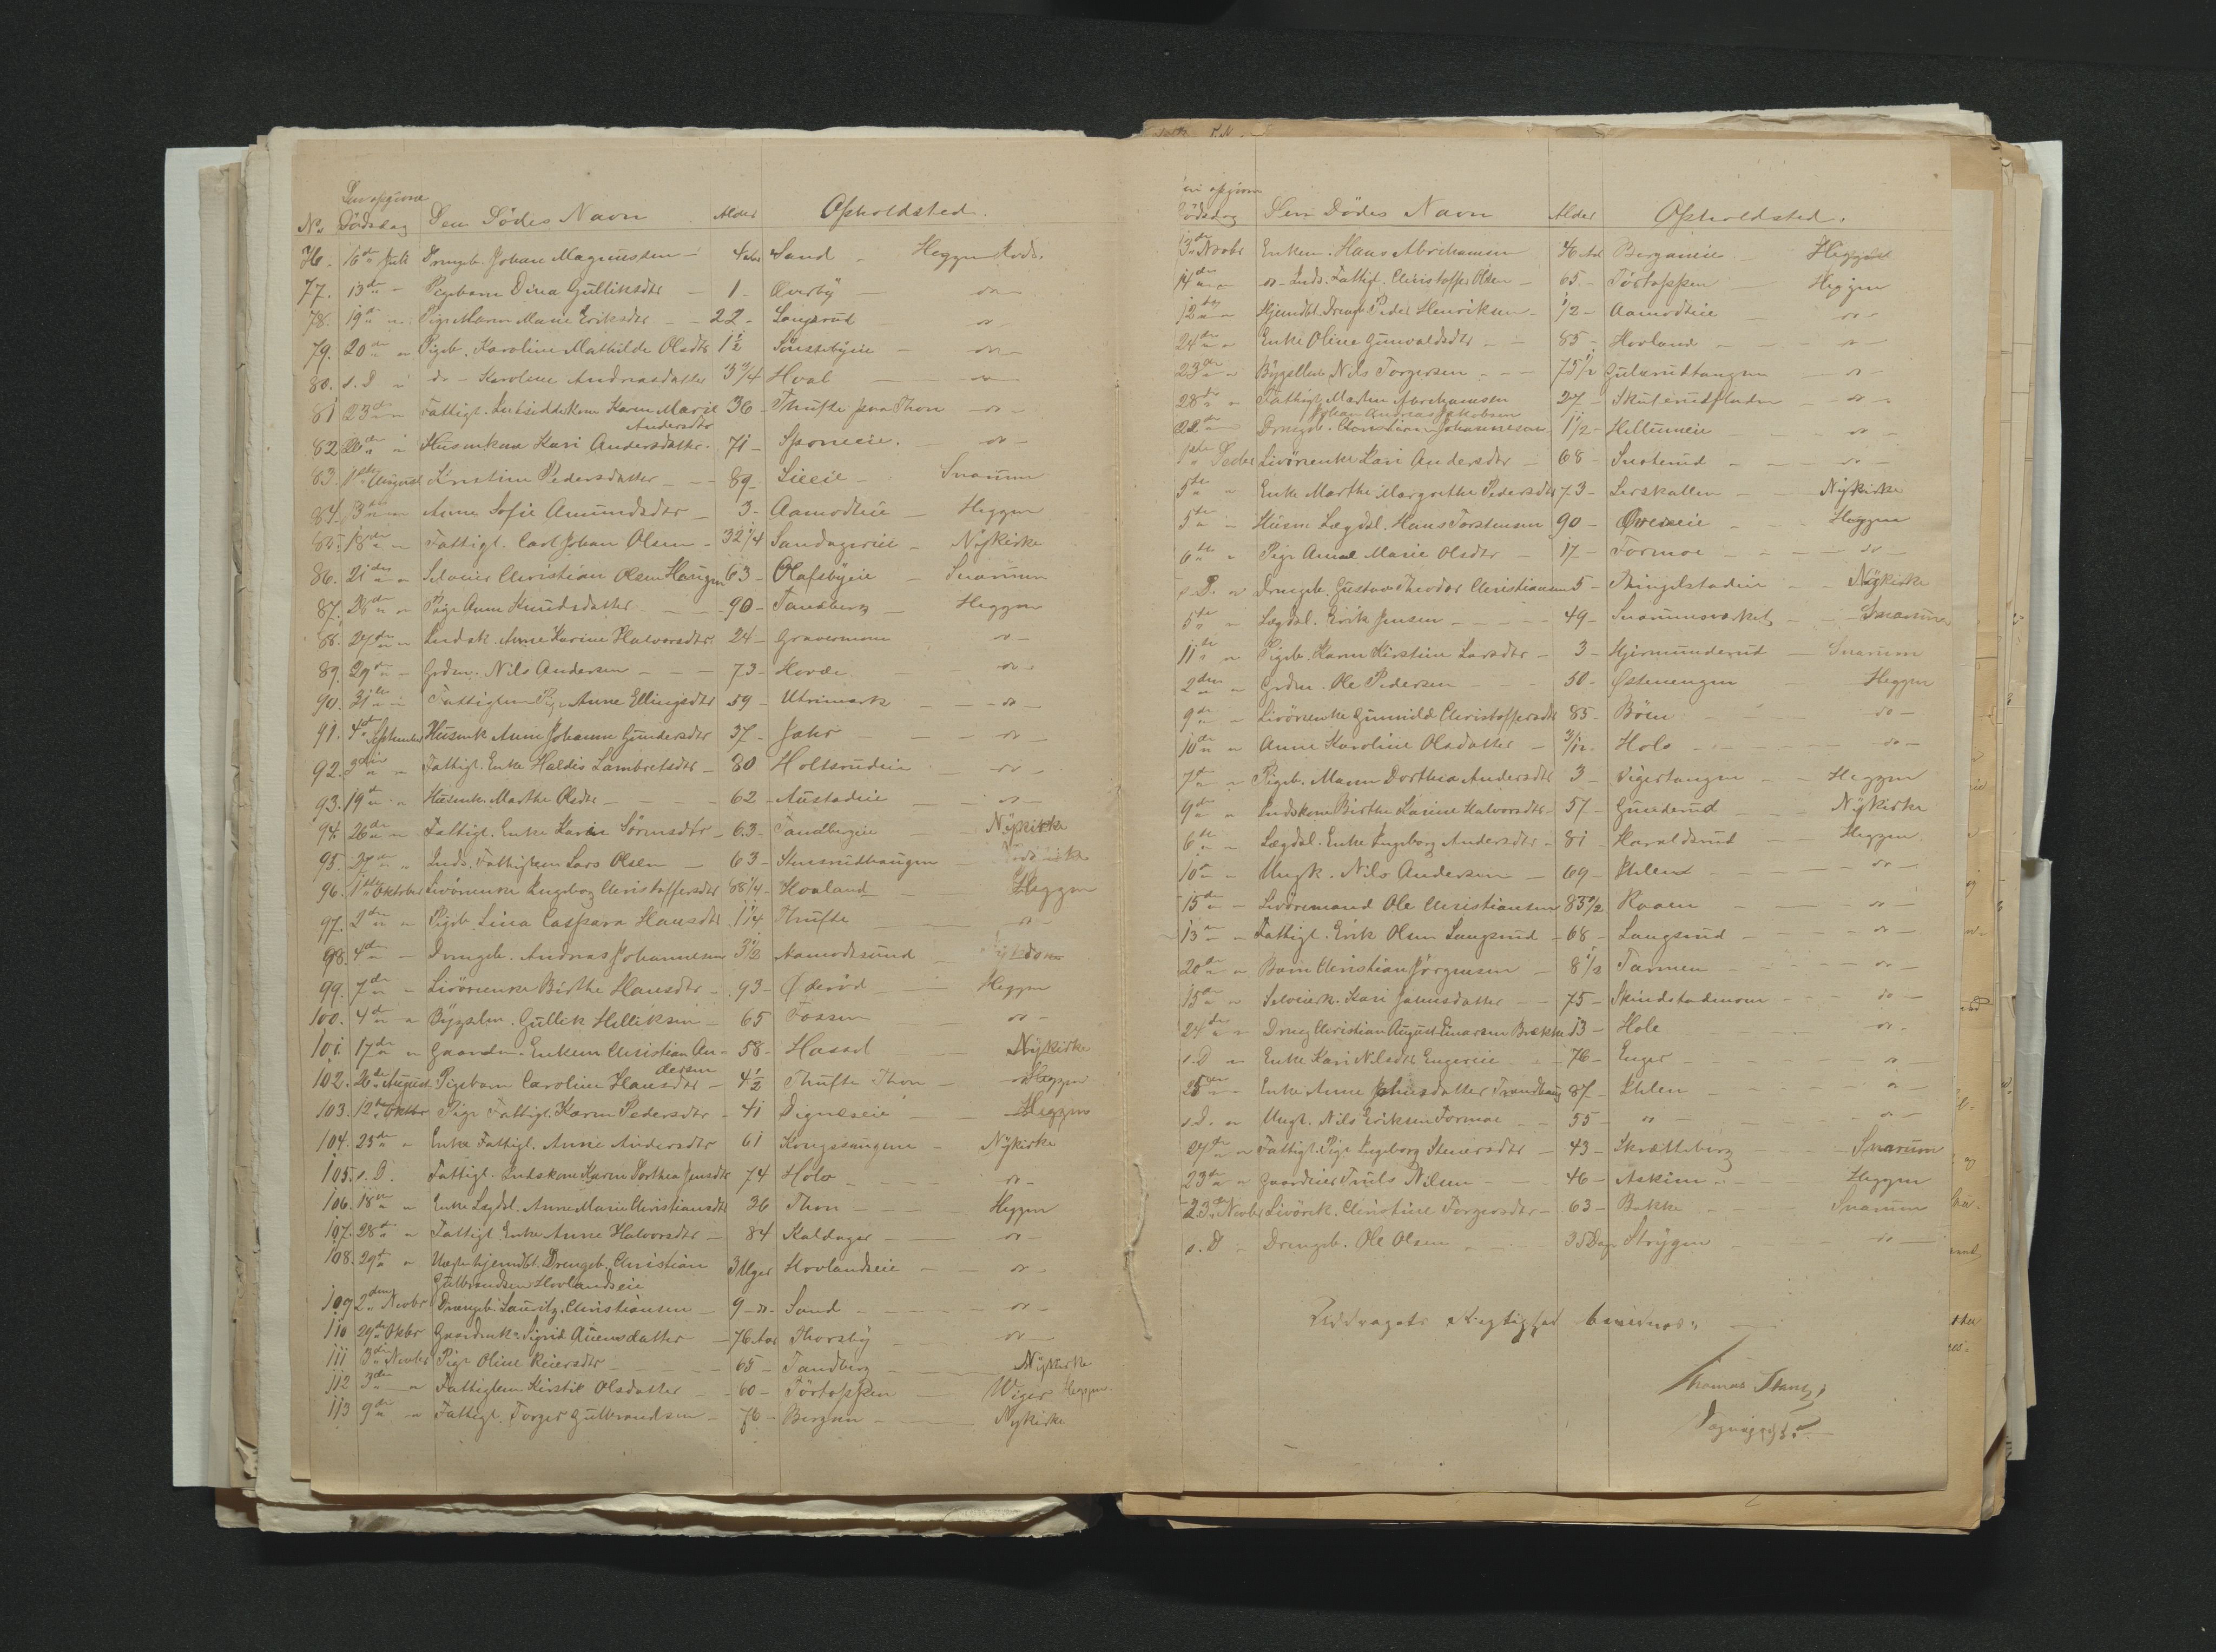 Den opgivne
No Dödsdag Den Dödes Navn Alder Opholdsted.
76. 16de Juli Drengb. Johan Magnussen 4 Aar Sand Heggen Rods.
77. 13de " Pigebarn Dina Gulliksdtr 1 - Overby do
78. 19de " Pige Maren Marie Eriksdtr 22 - Langerud do
79. 20de " Pigeb. Karoline Mathilde Olsdtr 1 1/2 Sönstebyeie do
80. s. D " do - Karoline Andreasdatter 3 3/4 Hval do
81 23de " Fattigl. Karen Marie 36 - Thufte paa Thon do
Andersdtr
82 26de " Huusmkone Kari Andersdatter 71 - Sponeeie. do
83. 1ste August Kirstine Pedersdatter 89 - Lieeie Snarum
84. 3die " Anne Sofie Amundsdtr 3 - Aamodteie Heggen
85. 18de " Fattigl. Carl Johan Olsen 32 1/4 Sandagereie Nykirke
86. 21de " Selveier Christian Olsen Haugen 63 - Olafsbyeie Snarum
87. 28de " Pige Anne Knudsdatter 90 - Tandberg Heggen
88. 27de " Indsk. Anne Karine Halvorsdtr 24 - Gravermoen do
89. 29de " Grdm. Nils Andersen 73 - Hovde do
90. 31te " Fattiglem Pige Anne Ellingsdtr 59 - Utrimark do
91. 4de September Husmk Anne Johanne Gundersdtr 37 - Jahr do
92. 3die " Fattigl. Enke Haldis Lambretsdtr 80 Holtsrudeie do
93. 19de " Husmk. Marthe Olsdtr 62 - Austadeie do
94. 26de " Fattigl. Enke Karin Sörensdtr 63 - Tandbergeie Nykirke
95. 27de " Inds. Fattiglem Lars Olsen 63 - Stensrudhaugen
96. 1ste Oktober Livörenke Ingeborg Christoffersdtr 68 1/4 - Hovland Heggen
97. 2den " Pigeb. Lina Caspara Hansdtr 1 1/4 Thufte do
98. 4de " Drengeb. Andreas Johannesen 3 1/2 Aamodtsund do
99. 7de " Livörenke Birthe Hansdtr 93 - Öderöd Heggen
100. 4de " Bygselm. Gullek Helliksen 65 Fossen do
101. 17de " Gaardm. Enkem Christian An- 58 - Hassel Nykirke
dersen
102. 26de August Pigebarn Caroline Hansdtr 4 1/2 Thufte Thon Heggen
103. 12te Oktbr Pige Fattigl. Karen Pedersdtr 41 Digneseie Heggen
104. 25de " Enke Fattigl. Anne Andersdtr 61 Kongssaugene Nykirke
105. s. D. Fattigl. Indskone Karen Dorthea Jensdtr 74 Holo do
106. 18de " Enke Lægdsl. Anne Marie Christiansdtr 36 Thon Heggen
107. 28de " Fattigl Enke Anne Halvorsdtr 84 Kaldager do
108. 29de " Uægte hjemdbt. Drengeb. Christian 3 Uger Hovlandseie do
Gulbrandsen Hovlandseie
109 2den Novbr Drengeb. Lauritz Christiansen 9 - do - Sand do
110 29de Oktbr Gaardmk. Sigrid Auensdatter 76 Aar Thorsby do
111 3die Novbr Pige Oline Reiersdtr 65 - Tandberg Nykirke
112 3die " Fattiglem Kirstie Olsdatter 60 - Törtoppen Heggen
113 9de " Fattigl. Torger Gulbrandsen 76 - Bergan Nykirke
opgivne
Dödsdag Den Dödes Navn Alder Opholdsted.
13de Novbr Enkem. Hans Abrahamsen 46 Aar Berganeie Heggen
14de " do - Inds. Fattigl. Christoffer Olsen 65 - Törtoppen Heggen
12te " Hjemdbt. Drengb. Peder Henriksen 1/2 - Aamodteie do
24de " Enke Oline Gunvaldsdtr 85 - Hovland do
23de " Bygselm. Nils Torgersen 75 1/2 Gulsrudtangen do
28de " Fattigl. Marten Abrahamsen 27 - Skutrudfladen do
Johan Andreas Jakobsen
22de " Drengb. Christian Johannesen 1 1/2 - Hilleneie do
1ste Decbr Livörenke Kari Andersdtr 68 - Snoterud do
5te " Enke Marthe Margrethe Pedersdtr 73 - Lerskallen Nykirke
5te " Husm Lægdsl. Hans Torstensen 90 - Övereeie Heggen
6te " Pige Anne Marie Olsdtr 17 - Formoe do
s. D. " Drengeb. Gustav Theodor Christiansen 5 - Thingelstadeie Nykirke
5te " Lægdsl. Erik Jensen 49 - Snarumsvoket Snarum
11te " Pigeb. Karen Kirstine Larsdtr 3 - Gjermunderud Snarum
2den " Grdm. Ole Pedersen 50 - Østenengen Heggen
9de " Livörenke Gunnild Christoffersdtr 85 - Böen do
10de " Anne Karoline Olsdatter 3/12 - Holo do
7de " Pigeb. Maren Dorthea Andersdtr 3 - Vigertangen Heggen
9de " Indskone Birthe Karine Halvorsdtr 57 - Gunderud Nykirke
6te " Lægdsl. Enke Ingeborg Andersdtr 81 - Haraldsrud Heggen
10de " Ungk. Nils Andersen 69 - Ihlen do
15de " Livöremand Ole Christiansen 83 1/2 Kaaen do
13de " Fattigl. Erik Olsen Langerud 68 - Langerud do
20de " Barn Christian Jörgensen 8 1/2 Tarmen do
15de " Selveierk. Kari Jahnsdatter 75 - Skindstadmoen do
24de " Dreng Christian August Einarsen Brække 13 - Hole do
s. D " Enke Kari Nilsdtr Engereie 76 - Enger do
25de " Enke Anne Johnsdatter 87 - Ihlen "
s. D. " Ungk. Nils Eriksen Formoe 55 " "
27de " Fattigl. Pige Ingeborg Steenersdtr 43 - Skrætteberg Snarum
23de " Gaardeier Truls Nilsen 46 - Askim Heggen
23de Novbr Livörek. Christine Torgersdtr 63 - Bakke Snarum
s. D " Drengeb. Ole Olsen 35 Dage Strygen do
Uddragets Rigtighed bevidnes.
Thomas